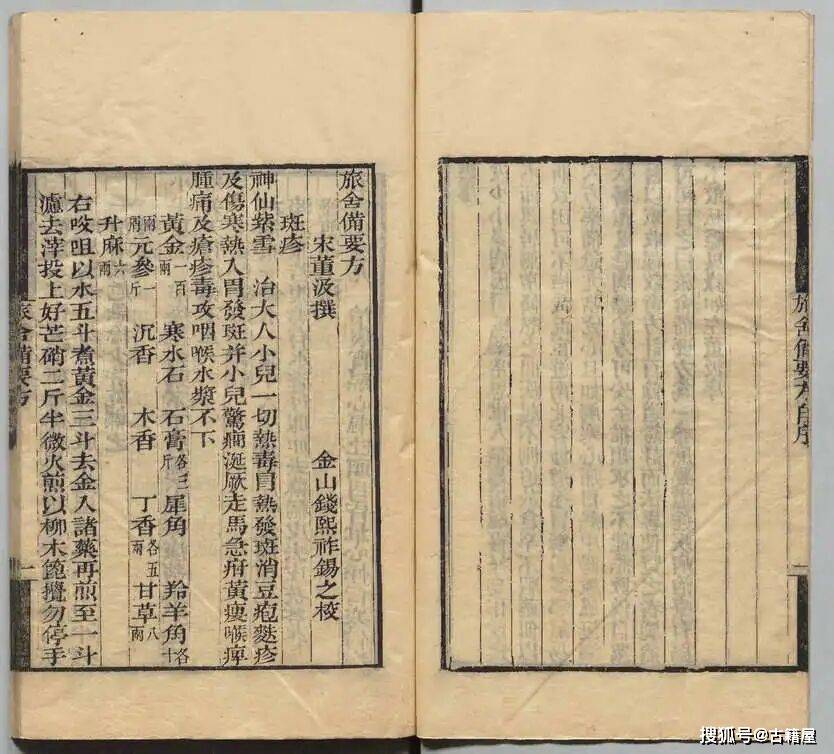 旅舍備要方自序
旅舍備要方
宋董汲撰 金山錢熙祚錫之校
斑疹
神仙紫雪 治大人小兒一切熱毒胃熱發斑消豆疱麩疹
及傷寒熱入胃發斑并小兒驚癇涎厥走馬急疳黃瘦喉痺
腫痛及瘡疹毒攻咽喉水漿不下
黃金一百兩 寒水石 石膏各三斤 犀角 羚羊角各十
兩 元參一斤 沉香 木香 丁香各五兩 甘草八兩
升麻六兩
右㕮咀以水五斗煮黃金三斗去金入諸藥再煎至一斗
濾去滓投上好芒硝二斤半微火煎以柳木篦攪勿停手
旅舍備要方
一
搜狐号@古籍屋